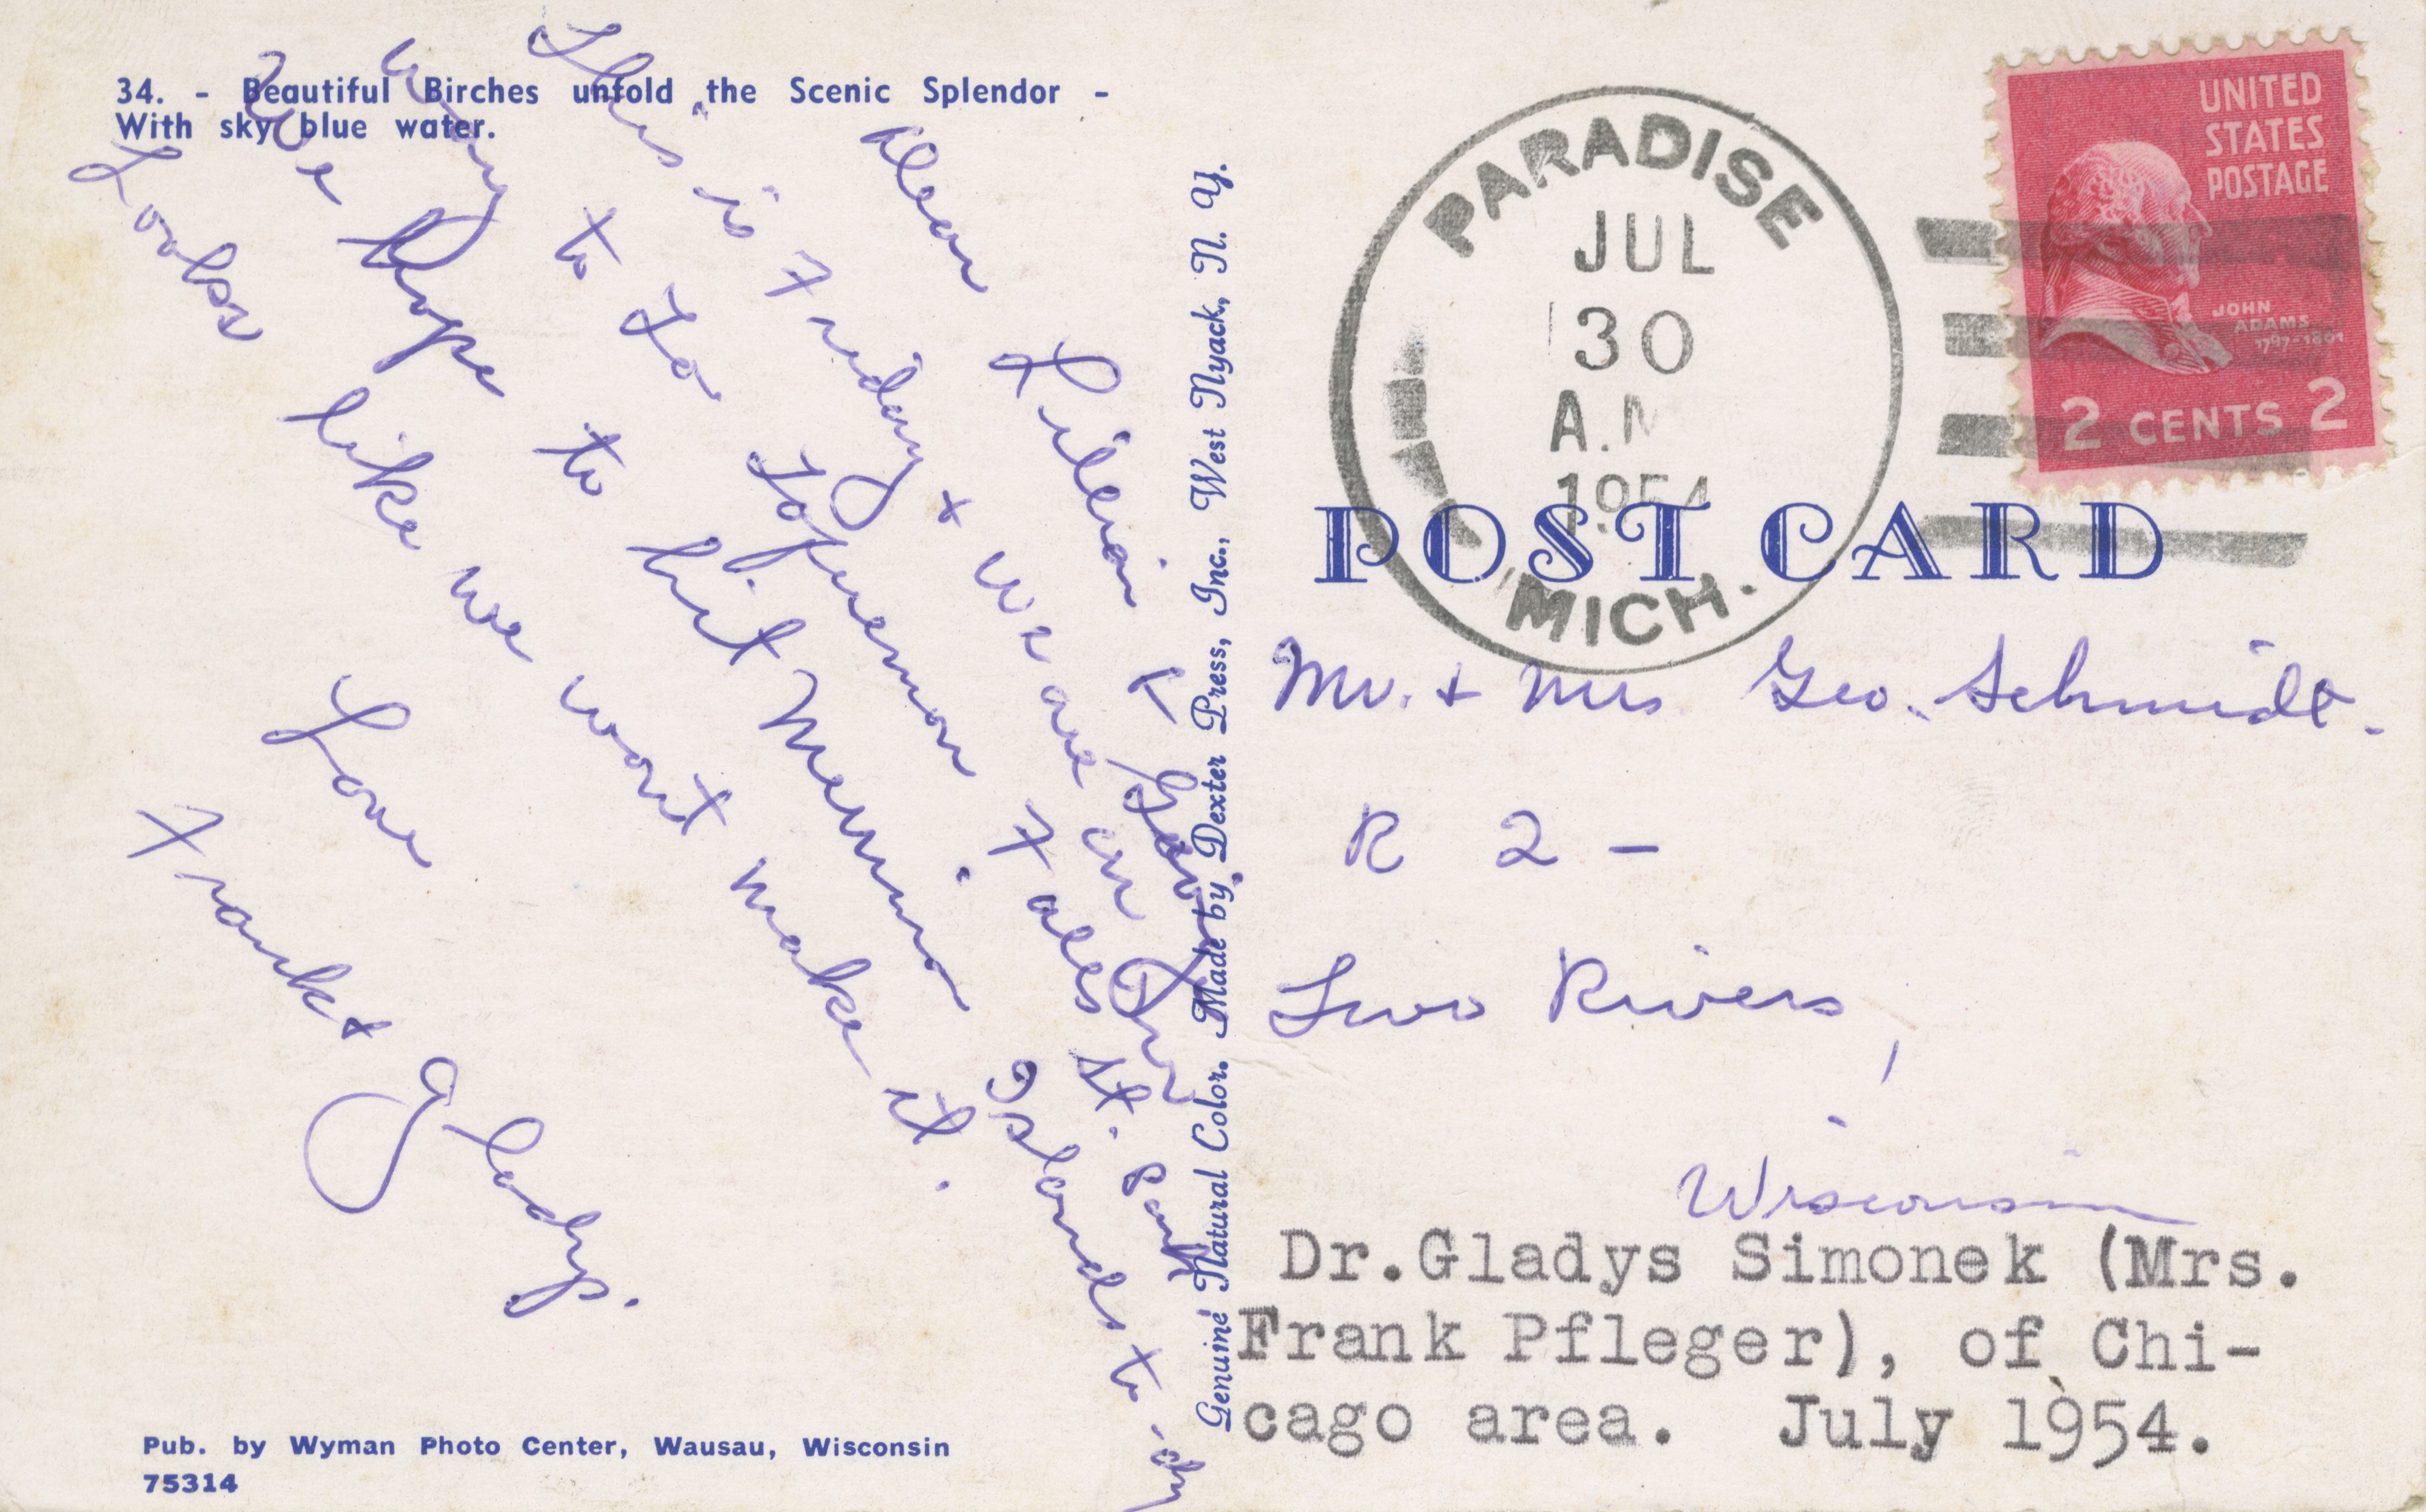 34. - Beautiful Birches unfold the Scenic Splendor -
With sky blue water.
Dear Lilian &
This is Friday + we are on
way to Falls Islands to-day
We hope to hit
Looks like we wont make it.
Love
Frank + Gladys.
Pub. by Wyman Photo Center, Wausau, Wisconsin
75314
Genuine Natural Color. Made by Dexter Press, Inc., West Nyack, N. Y.
PARADISE
JUL
30
A.M
1954
MICH.
UNITED
STATES
POSTAGE
JOHN
ADAMS
1797-1801
2 CENTS 2
POST CARD
Mr. + Mrs Geo. Schmidt.
R 2 -
Two Rivers,
Wisconsin
Dr.Gladys Simonek (Mrs.
Frank Pfleger), of Chi-
cago area. July 1954.